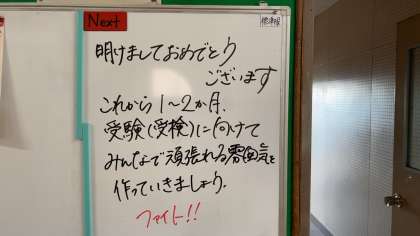 Next
明けましておめでとう
ございます
これから1~2か月、
受験(受検)に向けて
みんなで頑張れる雰囲気を
作っていきましょう。
ファイト!!